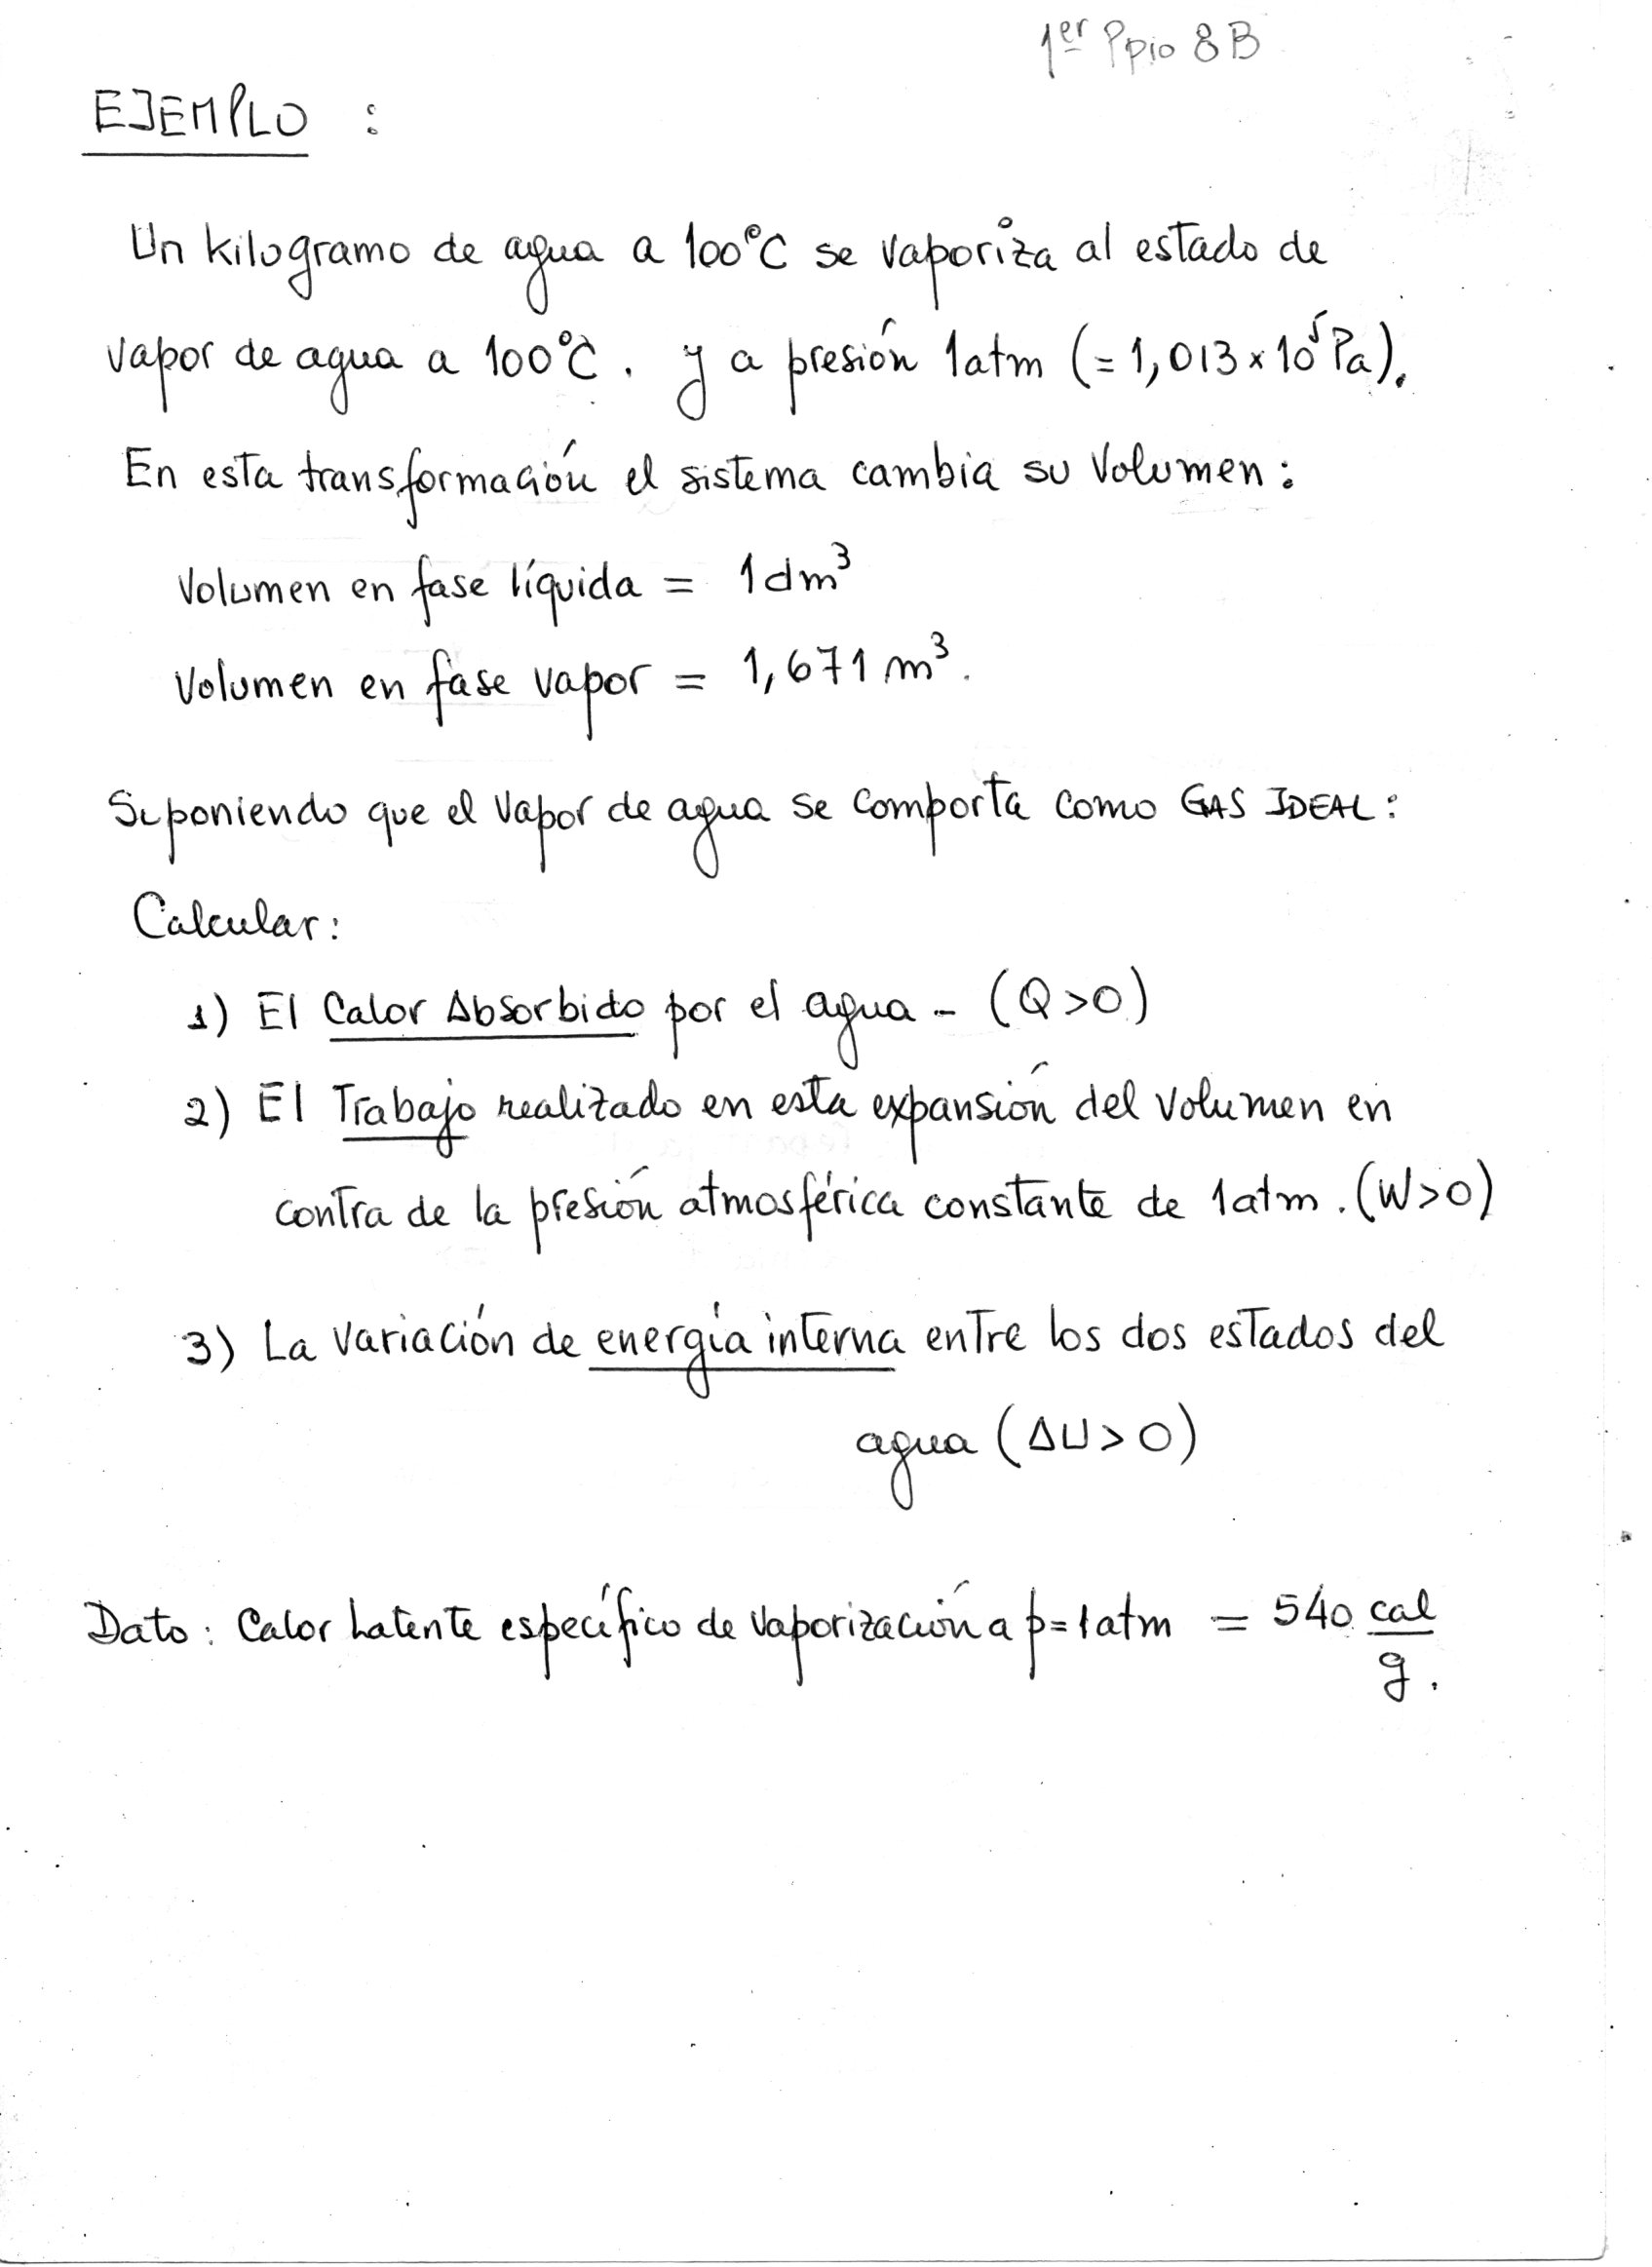 1er Ppio 8B
EJEMPLO :
Un kilogramo de agua a 100°C se vaporiza al estado de
vapor de agua a 100°C. y a presión 1atm (= 1,013 × 10⁵ Pa).
En esta transformación el sistema cambia su volumen:
Volumen en fase líquida = 1 dm³
Volumen en fase vapor = 1,671 m³.
Suponiendo que el vapor de agua se comporta como GAS IDEAL:
Calcular:
1) El Calor Absorbido por el agua - (Q>0)
2) El Trabajo realizado en esta expansión del volumen en
contra de la presión atmosférica constante de 1atm. (W>0)
3) La variación de energía interna entre los dos estados del
agua (ΔU>0)
Dato: Calor Latente específico de vaporización a p=1atm = 540 cal/g.